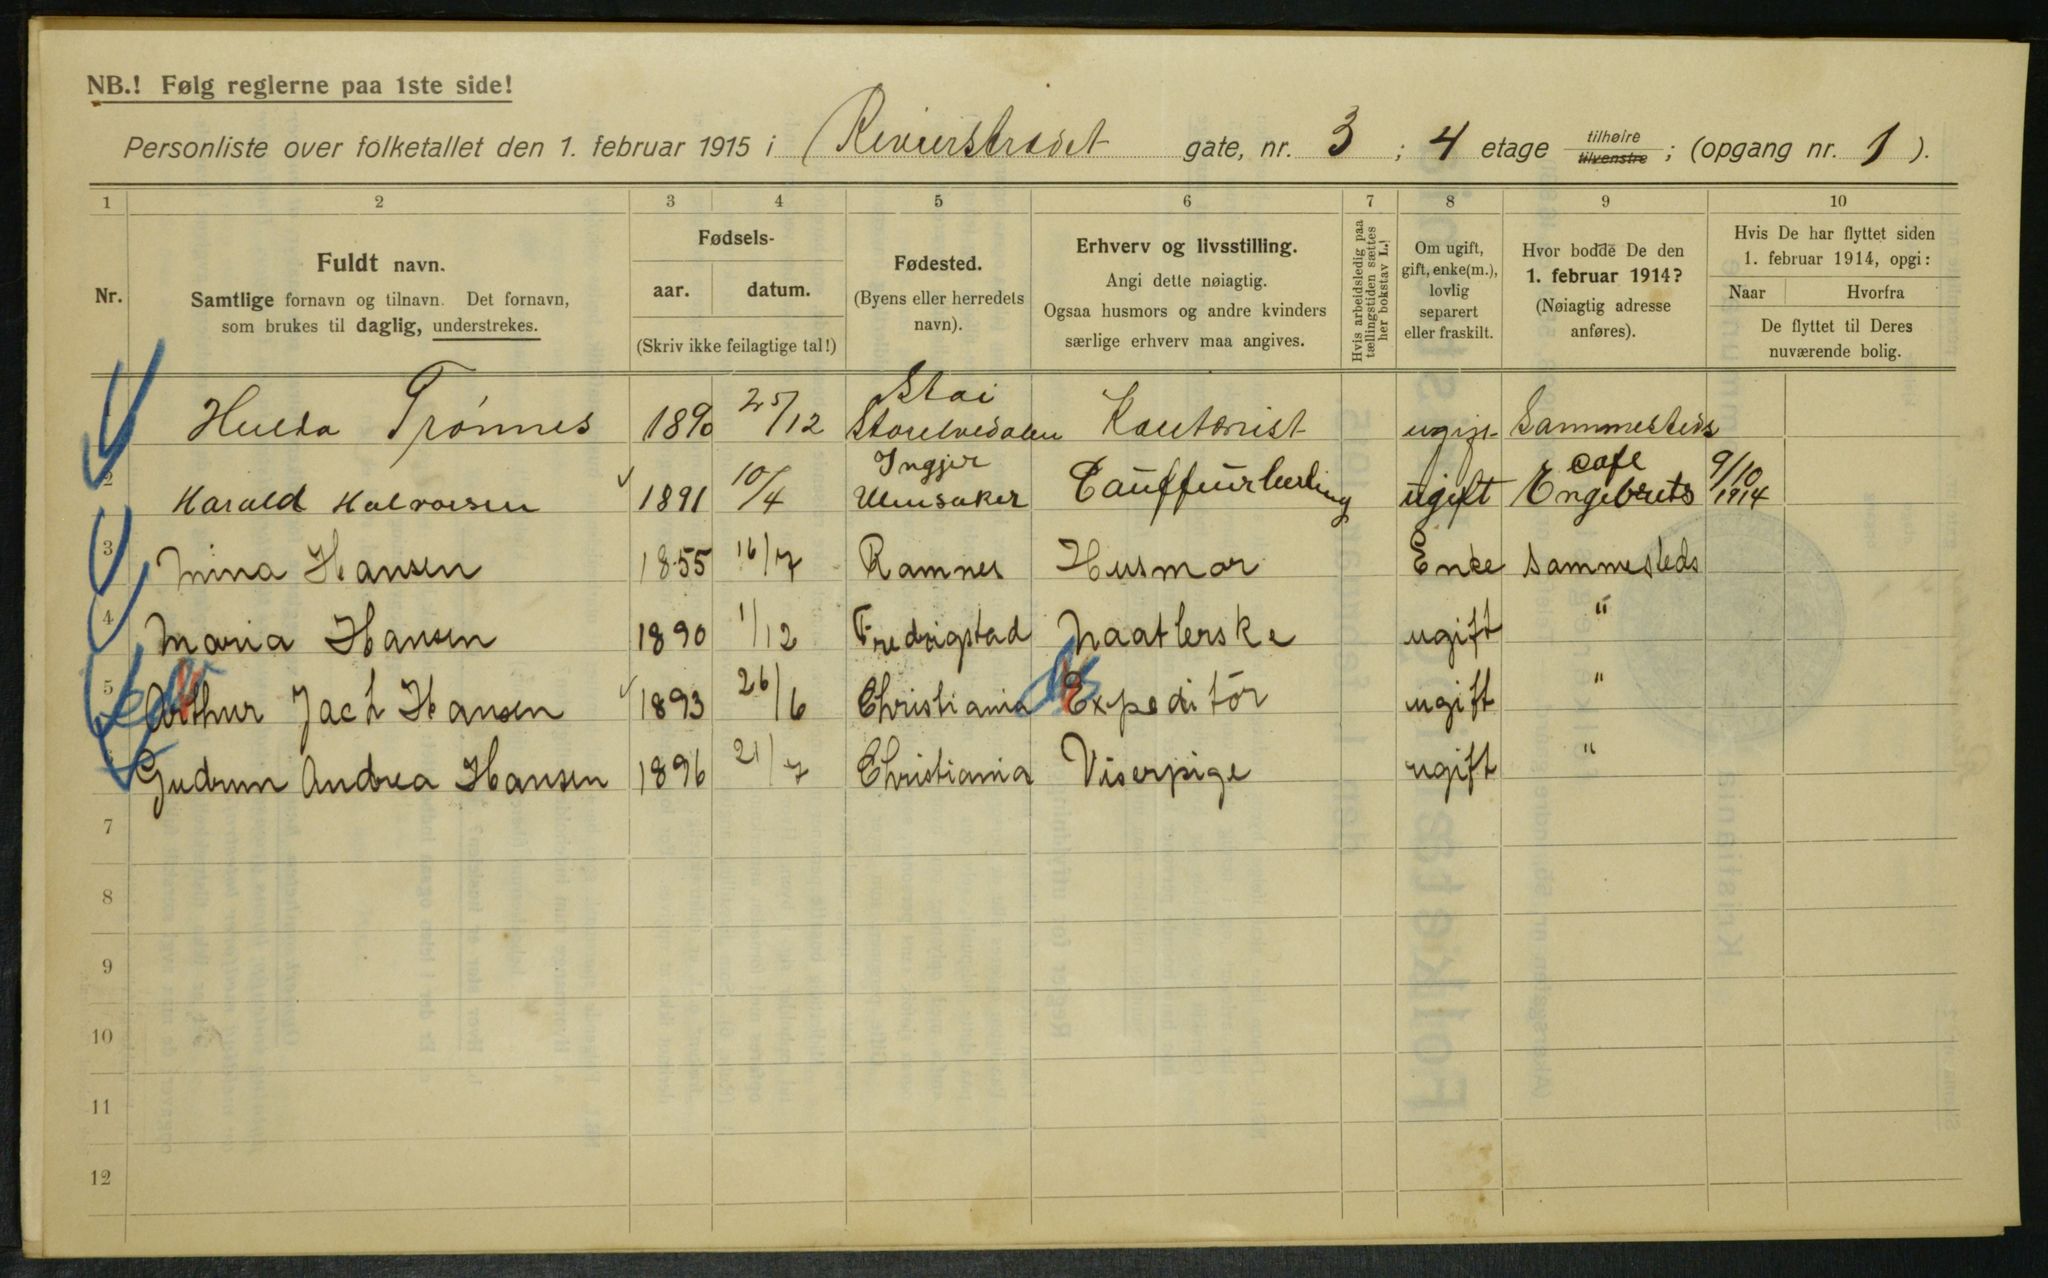 NB.! Følg reglerne paa 1ste side!
Personliste over folketallet den 1. februar 1915 i Revierstrædet gate, nr. 3 ; 4 etage tilhøire tilvenstre ; (opgang nr. 1 ).
1 2 3 4 5 6 7 8 9 10
Nr.
Fuldt navn.
Samtlige fornavn og tilnavn. Det fornavn,
som brukes til daglig, understrekes.
Fødsels-
aar. datum.
(Skriv ikke feilagtige tal!)
Fødested.
(Byens eller herredets
navn).
Erhverv og livsstilling.
Angi dette nøiagtig.
Ogsaa husmors og andre kvinders
særlige erhverv maa angives.
Hvis arbeidsledig paa
tællingstiden sættes
her bokstav L.!
Om ugift,
gift, enke(m.),
lovlig
separert
eller fraskilt.
Hvor bodde De den
1. februar 1914?
(Nøiagtig adresse
anføres).
Hvis De har flyttet siden
1. februar 1914, opgi:
Naar Hvorfra
De flyttet til Deres
nuværende bolig.
Hulda Trønnes 1890 25/12 Stai Storelvedalen Kontorist ugift Sammesteds
2 Harald Halvorsen 1891 10/4 Ullensaker Cauffeurlærling ugift cafe Engebrets 9/10 1914
3 Mina Hansen 1855 16/7 Ramnes Husmor Enke Sammesteds
4 Maria Hansen 1890 1/12 Fredrigstad Naatlerske ugift "
5 Arthur Jach Hansen 1893 26/6 Christiania Expeditör ugift "
Gudrun Andrea Hansen 1896 21/7 Christiania Viserpige ugift "
7
8
9
10
11
12